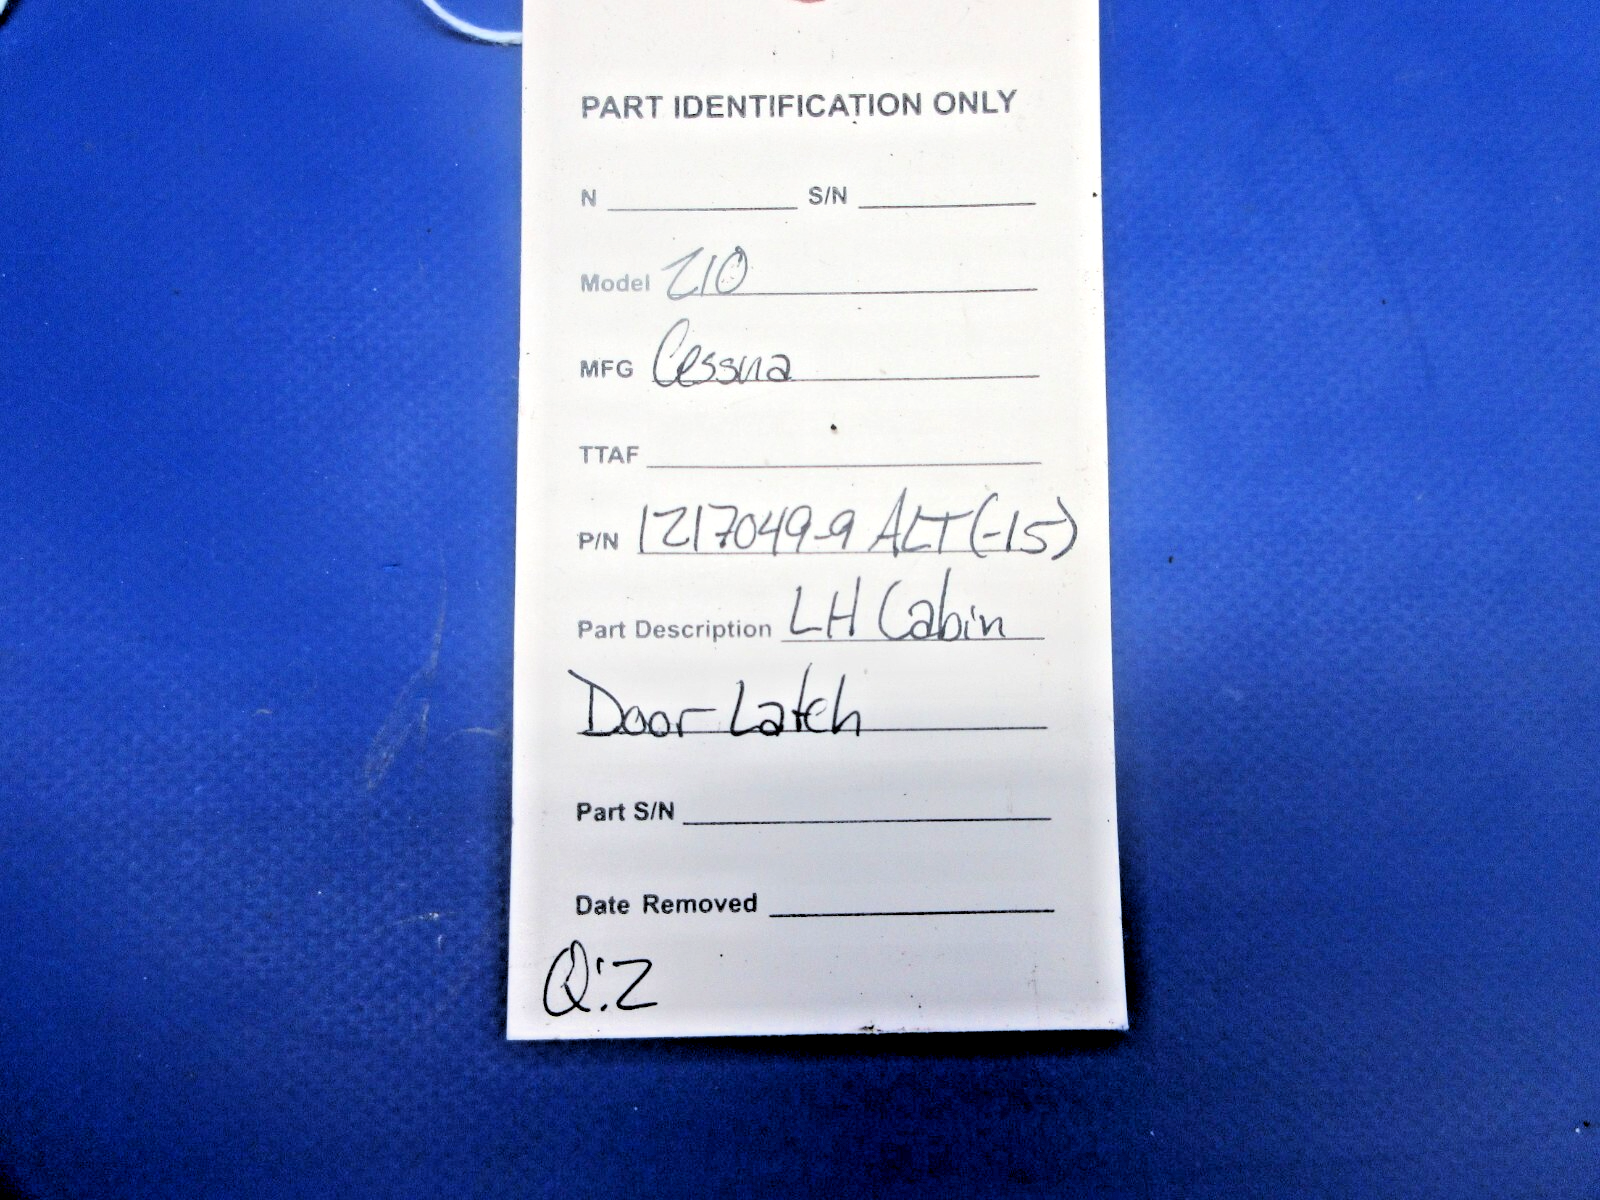 PART IDENTIFICATION ONLY
N S/N
Model 210
MFG Cessna
TTAF
P/N 1217049-9 ALT (-15)
Part Description LH Cabin
Door Latch
Part S/N
Date Removed
Q:2